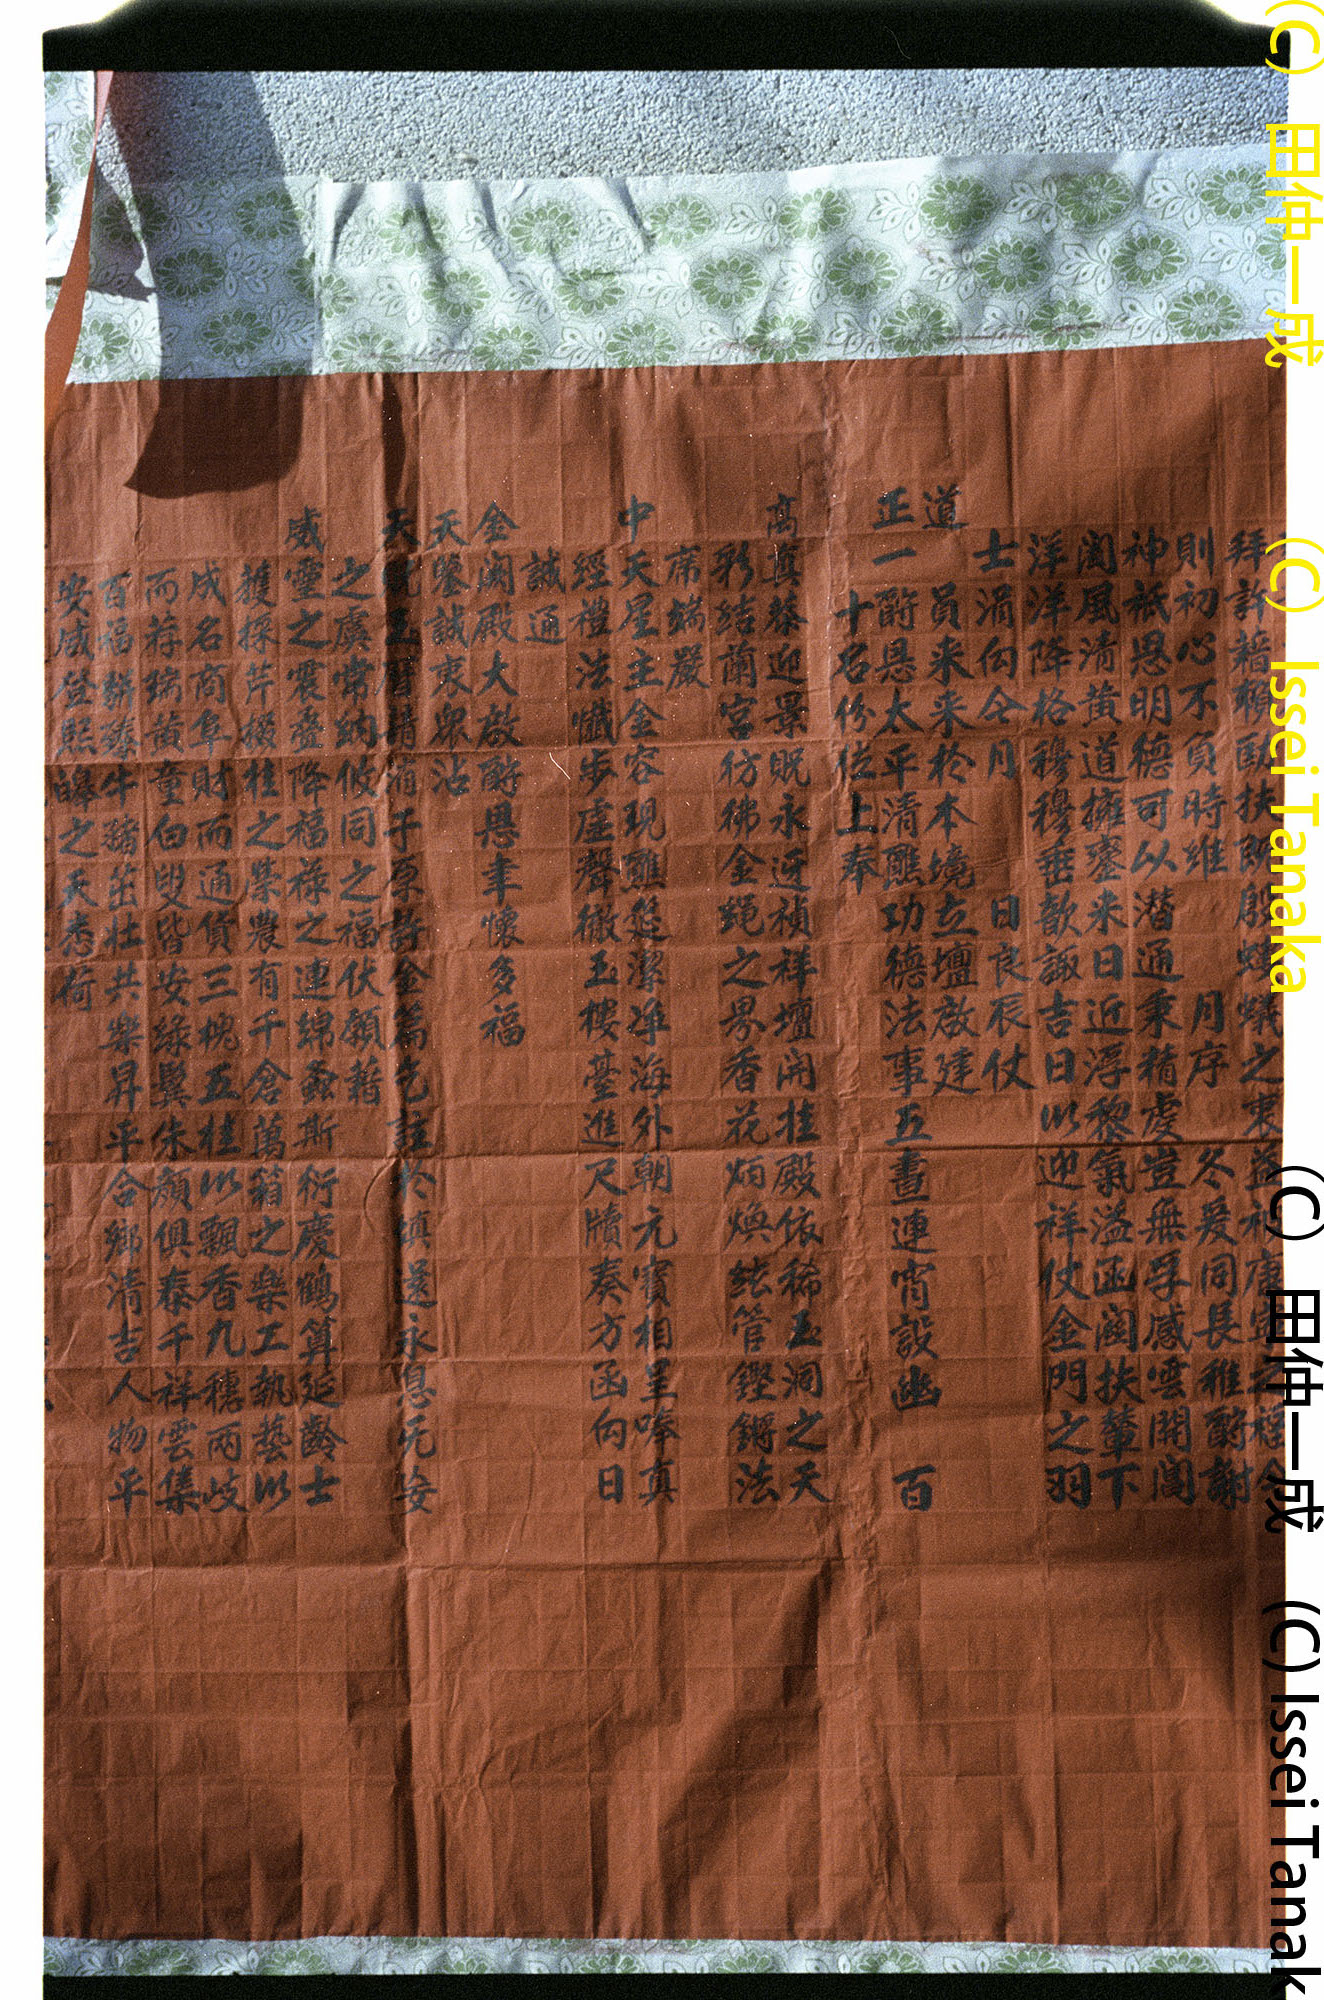 拜許藉賴匡扶既殷螻蟻之衷益
則初心不負時維 月序 冬爰同長稚酧謝
神祇恩明德可以潛通秉精虔豈無孚感雲開閶
闔風清黃道擁鑾來日近浮黎氣溢函闗扶輦下
洋洋降格穆穆垂歆諏吉日以迎祥仗金門之羽
士涓向今月 日良辰仗
道
員來來於本境立壇啟建
正一酧恩太平清醮功德法事五晝連宵設幽 百
十名份位上奉
高真恭迎景貺永迓禎祥壇開桂殿依稀玉洞之天
彩結蘭宮彷彿金繩之界香花炳煥絃管鏗鏘法
席端嚴
中天星主金容現醮筵潔淨海外朝元寶相呈唪真
經禮法懺步虛聲徹玉樓臺進尺牘奏方函向日
誠通
金闕殿大啟酧恩聿懷多福
天鑒誠衷眾沾
天
之虞常納攸同之福伏願藉
威靈之震疊降福祿之連綿螽斯衍慶鶴算延齡士
獲採芹掇桂之榮農有千倉萬箱之樂工執藝以
成名商阜財而通貨三槐五桂以飄香九穗兩岐
而荐瑞黃童白叟皆安綠鬢朱顏俱泰千祥雲集
百福駢臻牛豬茁壯共樂昇平合鄉清吉人物平
安咸登熙皞之天悉荷
(C) 田仲一成 (C) Issei Tanaka
(C) 田仲一成 (C) Issei Tanak